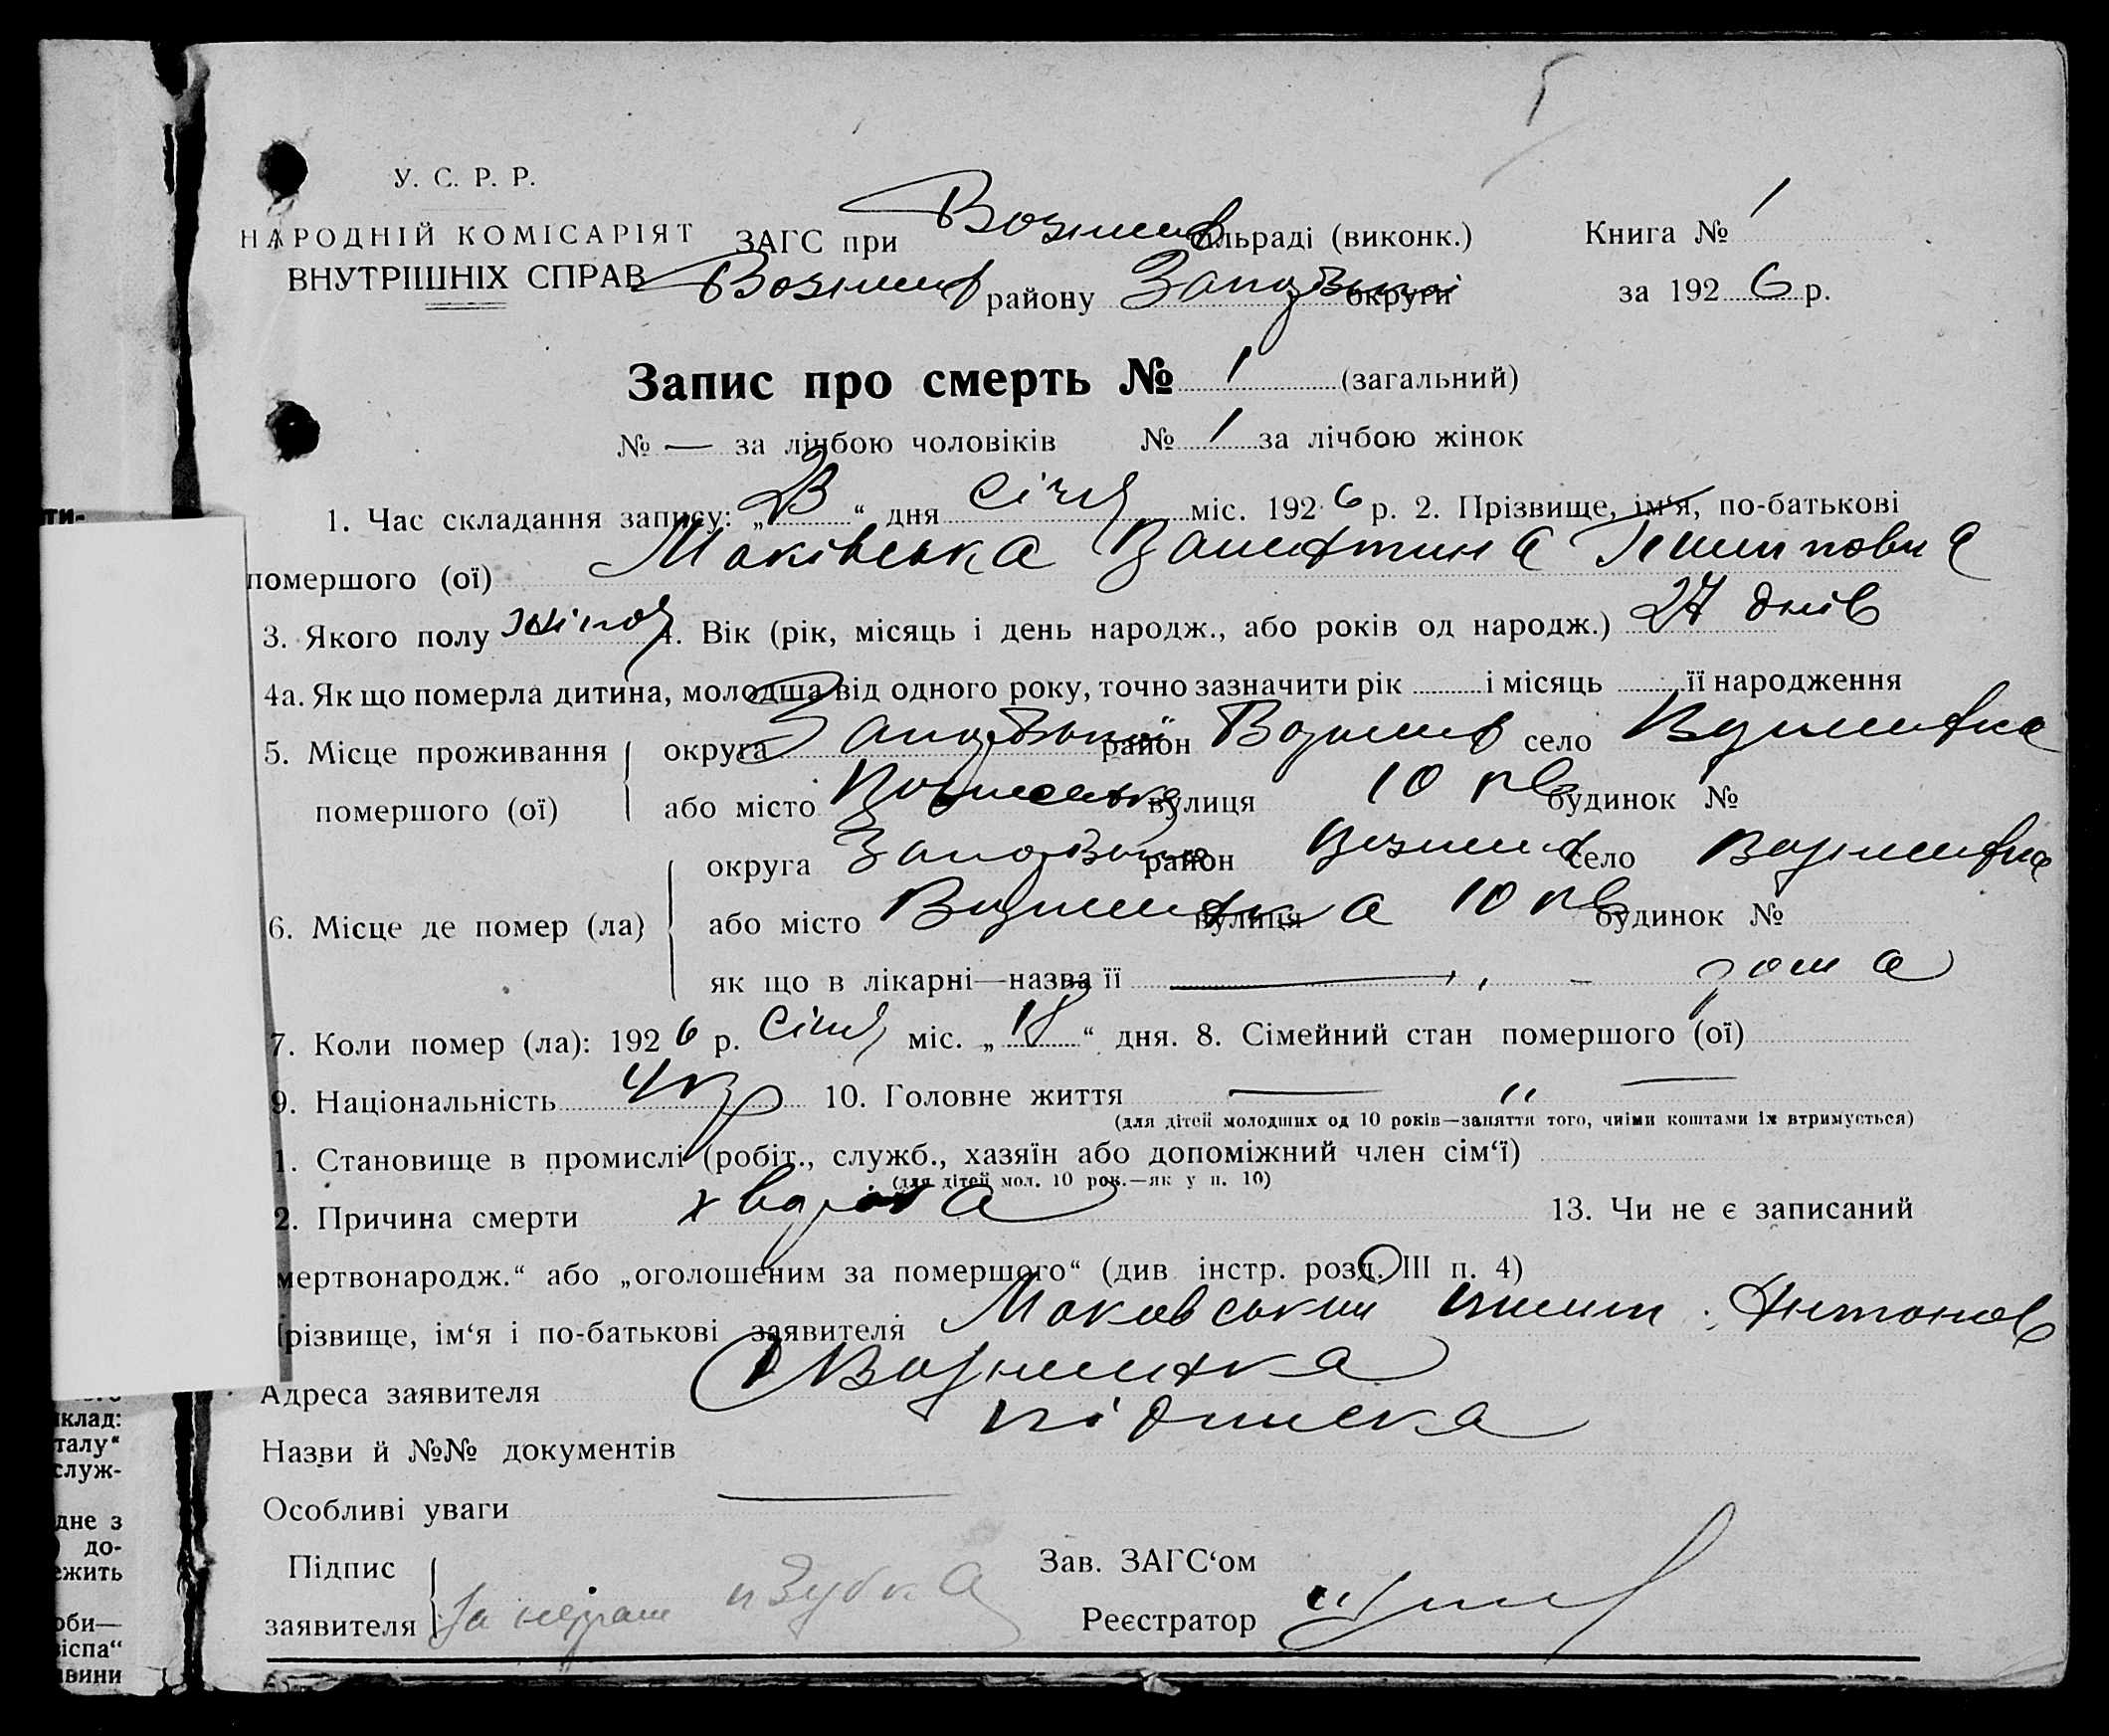 У. С. Р. Р.
НАРОДНІЙ КОМІСАРІЯТ
ВНУТРІШНІХ СПРАВ
ЗАГС при Вознесен сільраді (виконк.)
Вознесен району Запорізької округи
Книга № 1
за 1926 р.
Запис про смерть № 1 (загальний)
№ — за лічбою чоловіків № 1 за лічбою жінок
1. Час складання запису: „ “ дня Січня міс. 1926 р. 2. Прізвище, ім‘я, по-батькові
помершого (ої) Маківська Валентина Пилиповна
3. Якого полу жіноч 4. Вік (рік, місяць і день народж., або років од народж.) 27 днів
4а. Як що померла дитина, молодша від одного року, точно зазначити рік і місяць її народження
5. Місце проживання помершого (ої) округа Запорізької район Вознесен село Вознесенка
або місто вулиця 10 кв будинок №
6. Місце де помер (ла) округа район Вознесен село Вознесенка
або місто Вознесенка вулиця 10 кв будинок №
як що в лікарні—назва її — дома
7. Коли помер (ла): 1926 р. Січня міс. „18“ дня. 8. Сімейний стан помершого (ої)
9. Національність Укр 10. Головне життя — „ —
(для дітей молодших од 10 років—заняття того, чиіми коштами їх втримується)
1. Становище в промислі (робіт., служб., хазяїн або допоміжний член сім‘ї)
(для дітей мол. 10 рок.—як у п. 10)
2. Причина смерти хвороба 13. Чи не є записаний
мертвонародж.“ або „оголошеним за помершого“ (див інстр. розд. III п. 4)
різвище, ім‘я і по-батькові заявителя Маковський Пилип Антонов
Адреса заявителя Вознесенка
Назви й №№ документів підписка
Особливі уваги —
Підпис
заявителя За неграм Зубка
Зав. ЗАГС‘ом
Реєстратор
ти-
клад:
талу“
служ-
дне з
до-
ежить
оби—
віспа“
авини